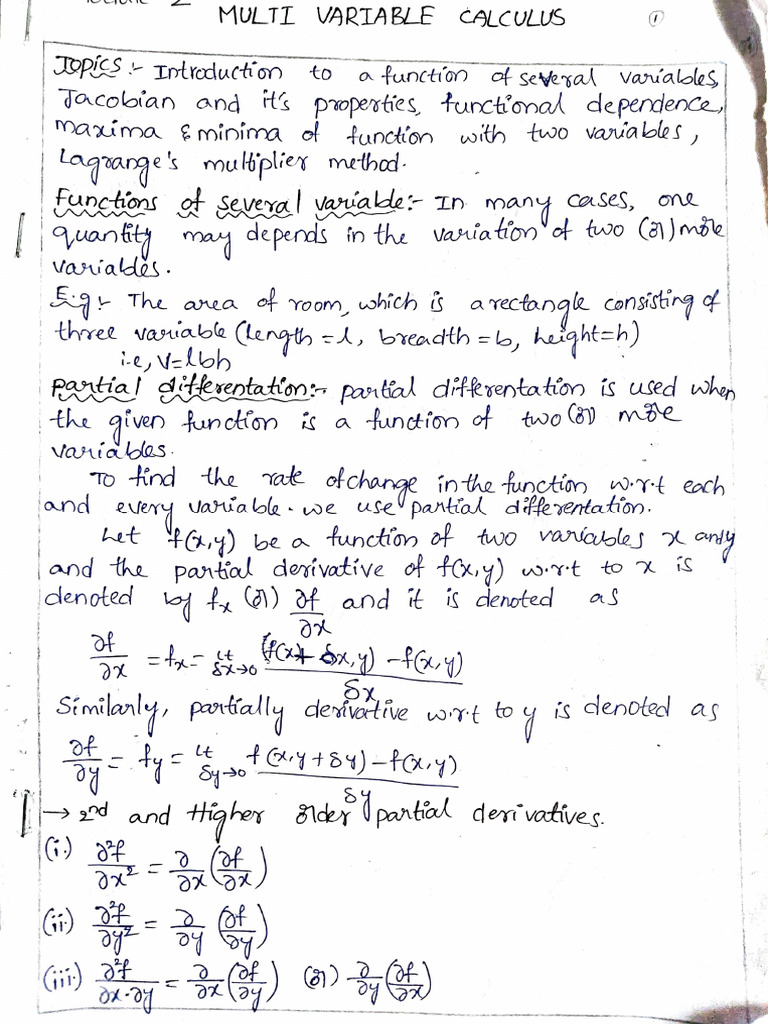 2
MULTI VARIABLE CALCULUS
1
Topics :- Introduction to a function of several variables,
Jacobian and it's properties, functional dependence,
maxima & minima of function with two variables,
Lagrange's multiplier method.
Functions of several variable:- In many cases, one
quantity may depends in the variation of two (or) more
variables.
E.g:- The area of room, which is a rectangle consisting of
three variable (length = l, breadth = b, height = h)
i.e, V = lbh
Partial differentation:- partial differentation is used when
the given function is a function of two (or) more
variables.
To find the rate of change in the function w.r.t each
and every variable. we use partial differentation.
Let f(x,y) be a function of two variables x and y
and the partial derivative of f(x,y) w.r.t to x is
denoted by fx (or) ∂f/∂x and it is denoted as
∂f/∂x = fx = lt δx→0 (f(x + δx, y) - f(x,y))/δx
Similarly, partially derivative w.r.t to y is denoted as
∂f/∂y = fy = lt δy→0 (f(x,y + δy) - f(x,y))/δy
→ 2nd and Higher order partial derivatives.
(i.) ∂²f/∂x² = ∂/∂x (∂f/∂x)
(ii) ∂²f/∂y² = ∂/∂y (∂f/∂y)
(iii.) ∂²f/∂x.∂y = ∂/∂x (∂f/∂y) (or) ∂/∂y (∂f/∂x)